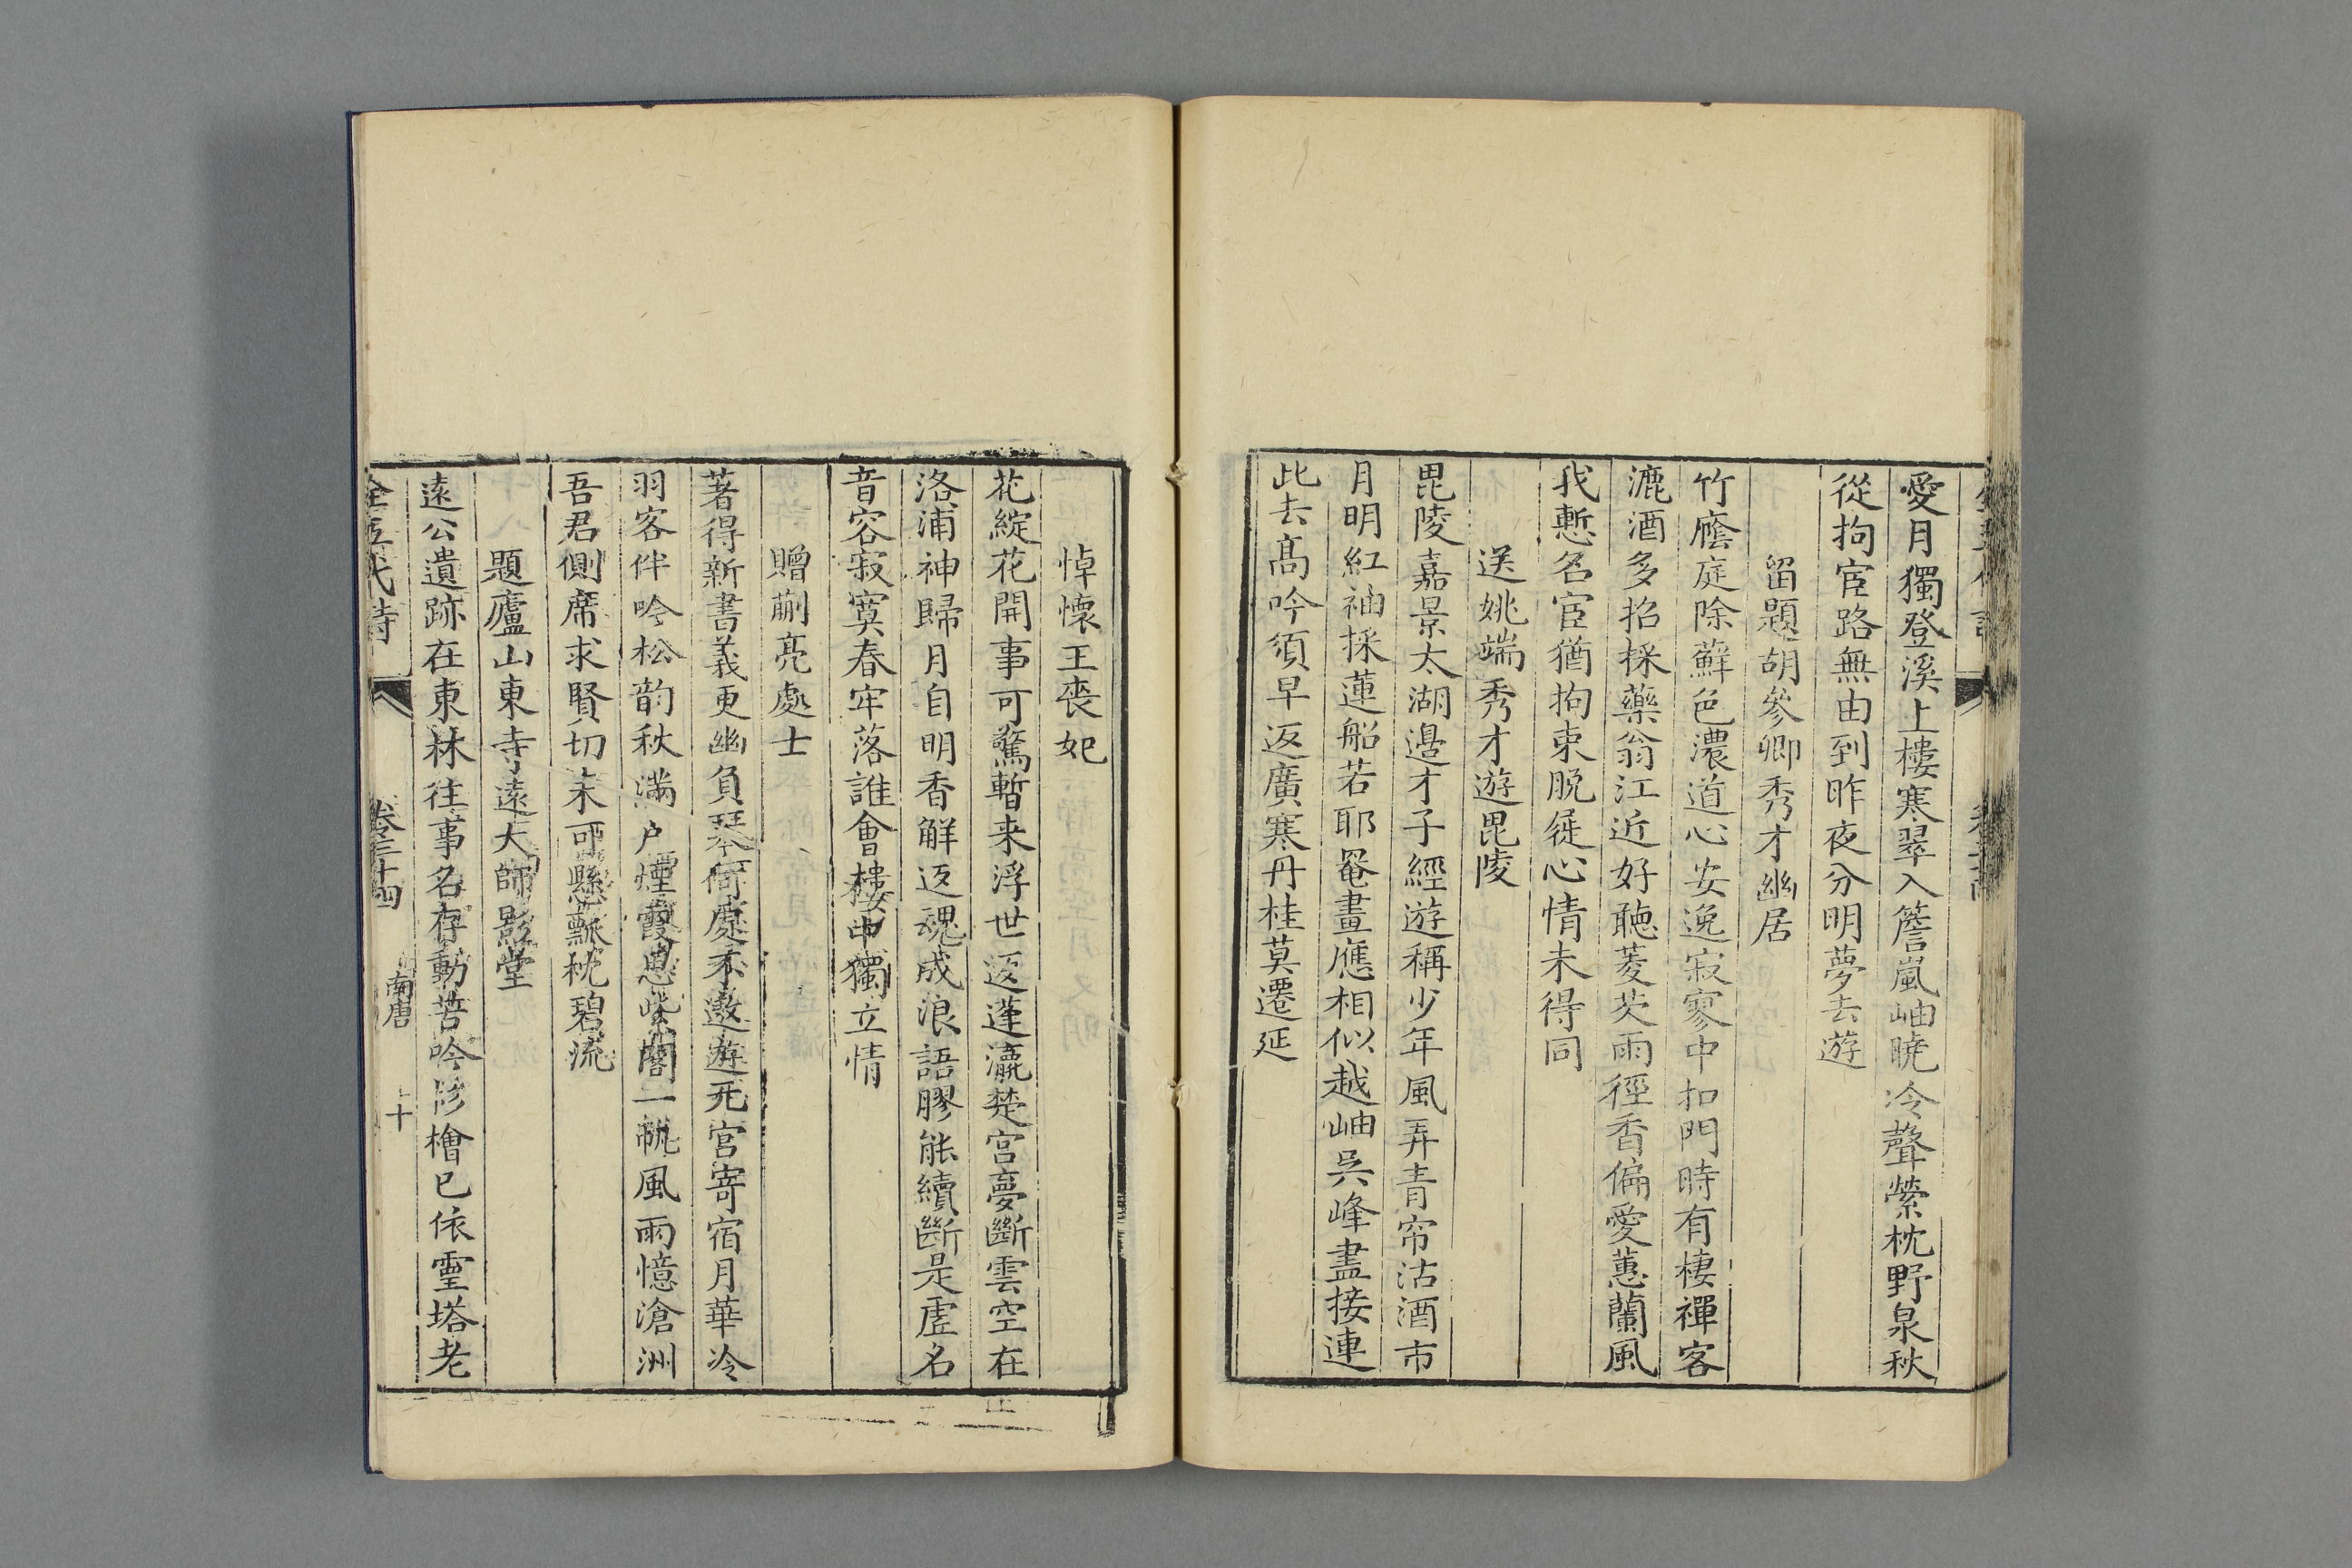 愛月獨登溪上樓寒翠入簷嵐岫曉冷聲縈枕野泉秋
從拘宦路無由到昨夜分明夢去遊
留題胡參卿秀才幽居
竹廕庭除蘚色濃道心安逸寂寥中扣門時有棲禪客
漉酒多招採藥翁江近好聽菱芡雨徑香偏愛蕙蘭風
我慙名宦猶拘束脫屣心情未得同
送姚端秀才遊毘陵
毘陵嘉景太湖邊才子經遊稱少年風弄青帘沽酒市
月明紅袖採蓮船若耶罨畫應相似越岫吳峰盡接連
此去高吟須早返廣寒丹桂莫遷延
悼懷王喪妃
花綻花開事可驚暫来浮世返蓬瀛楚宮夢斷雲空在
洛浦神歸月自明香解返魂成浪語膠能續斷是虛名
音容寂寞春牢落誰會樓中獨立情
贈蒯亮處士
著得新書義更幽負琴何處不遨遊玄宮寄宿月華冷
羽客伴吟松韵秋滿户煙霞思紫閣一帆風雨憶滄洲
吾君側席求賢切未可懸瓢枕碧流
題廬山東寺遠大師影堂
遠公遺跡在東林往事名存動苦吟杉檜已依靈塔老
全五代詩
卷三十四
南唐
十